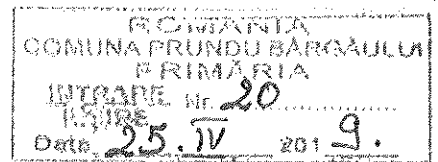 ROMÂNIA
COMUNA PRUNDU BÂRGĂULUI
PRIMĂRIA
INTRARE Nr. 20
IEȘIRE
Data 25.IV 2019.